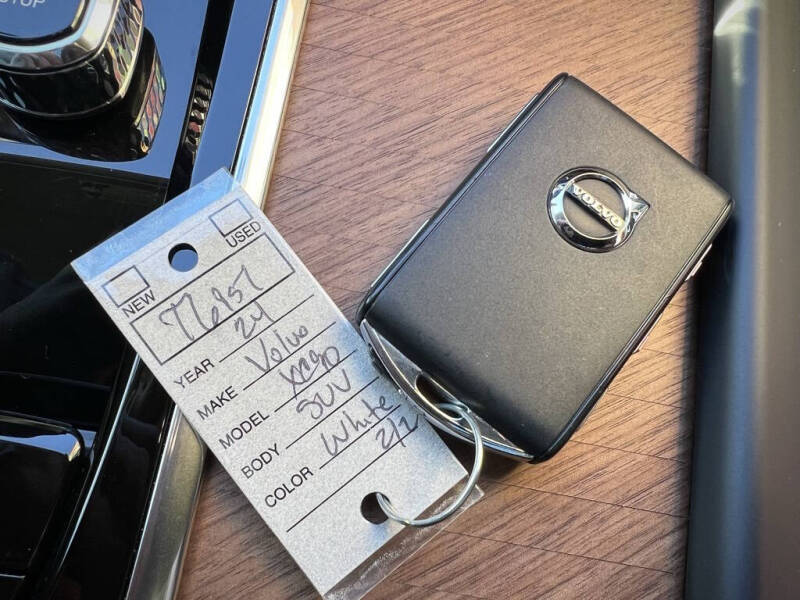 VOLVO
NEW USED
YEAR 24
MAKE Volvo
MODEL XC90
BODY SUV
COLOR White
2/2